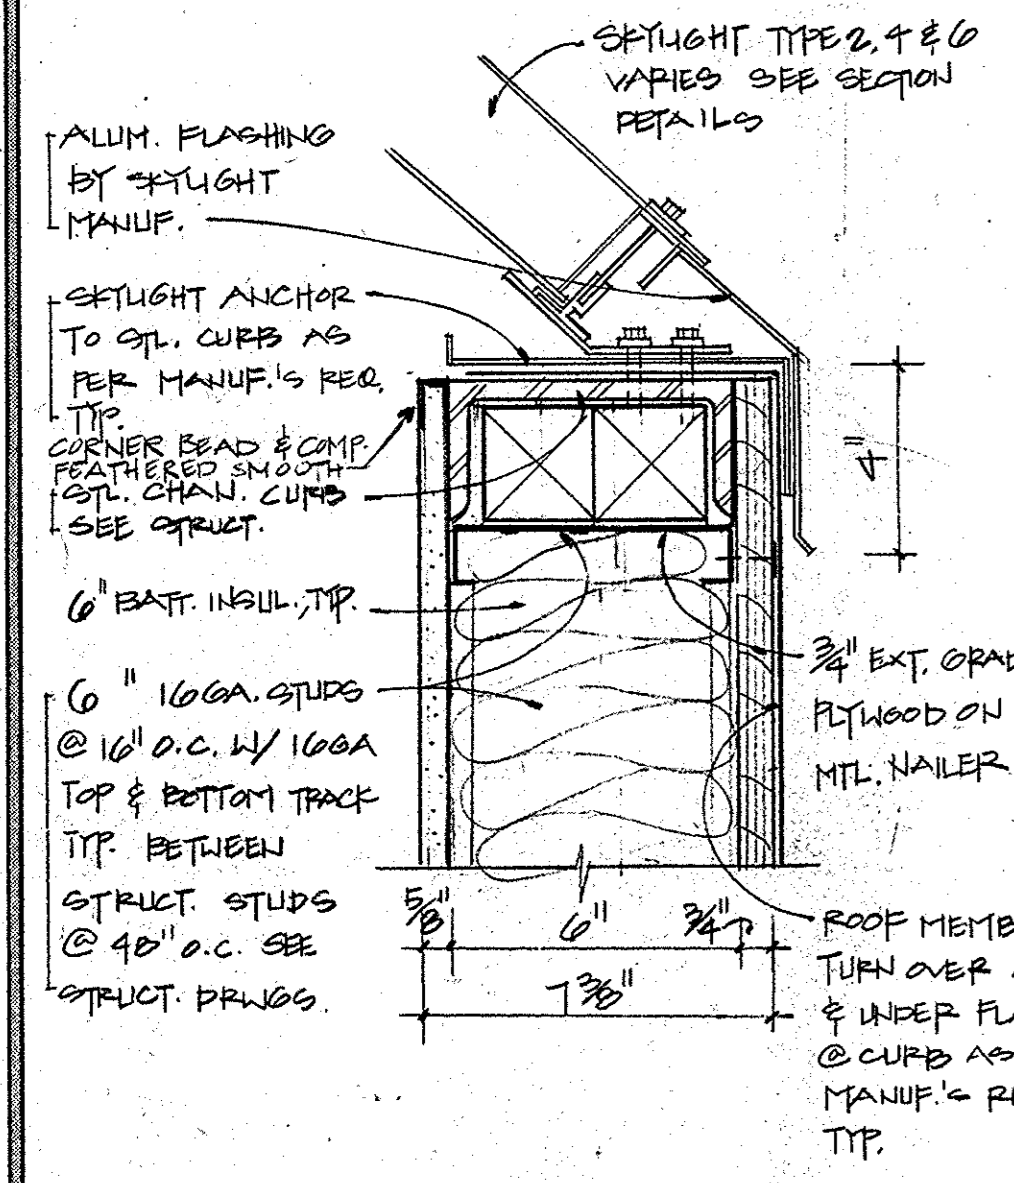 SKYLIGHT TYPE 2, 4 & 6
VARIES SEE SECTION
DETAILS
ALUM. FLASHING
BY SKYLIGHT
MANUF.
SKYLIGHT ANCHOR
TO STL. CURB AS
PER MANUF.'S REQ.
TYP.
CORNER BEAD & COMP.
FEATHERED SMOOTH
STL. CHAN. CURB
SEE STRUCT.
6" BATT. INSUL., TYP.
6" 16 GA. STUDS
@ 16" O.C. W/ 16GA
TOP & BOTTOM TRACK
TYP. BETWEEN
STRUCT. STUDS
@ 48" O.C. SEE
STRUCT. DRWGS.
4"
3/4" EXT. GRAD
PLYWOOD ON
MTL. NAILER
ROOF MEMB
TURN OVER
& UNDER FLA
@ CURB AS
MANUF.'S RE
TYP.
5/8" 6" 3/4"
7 3/8"